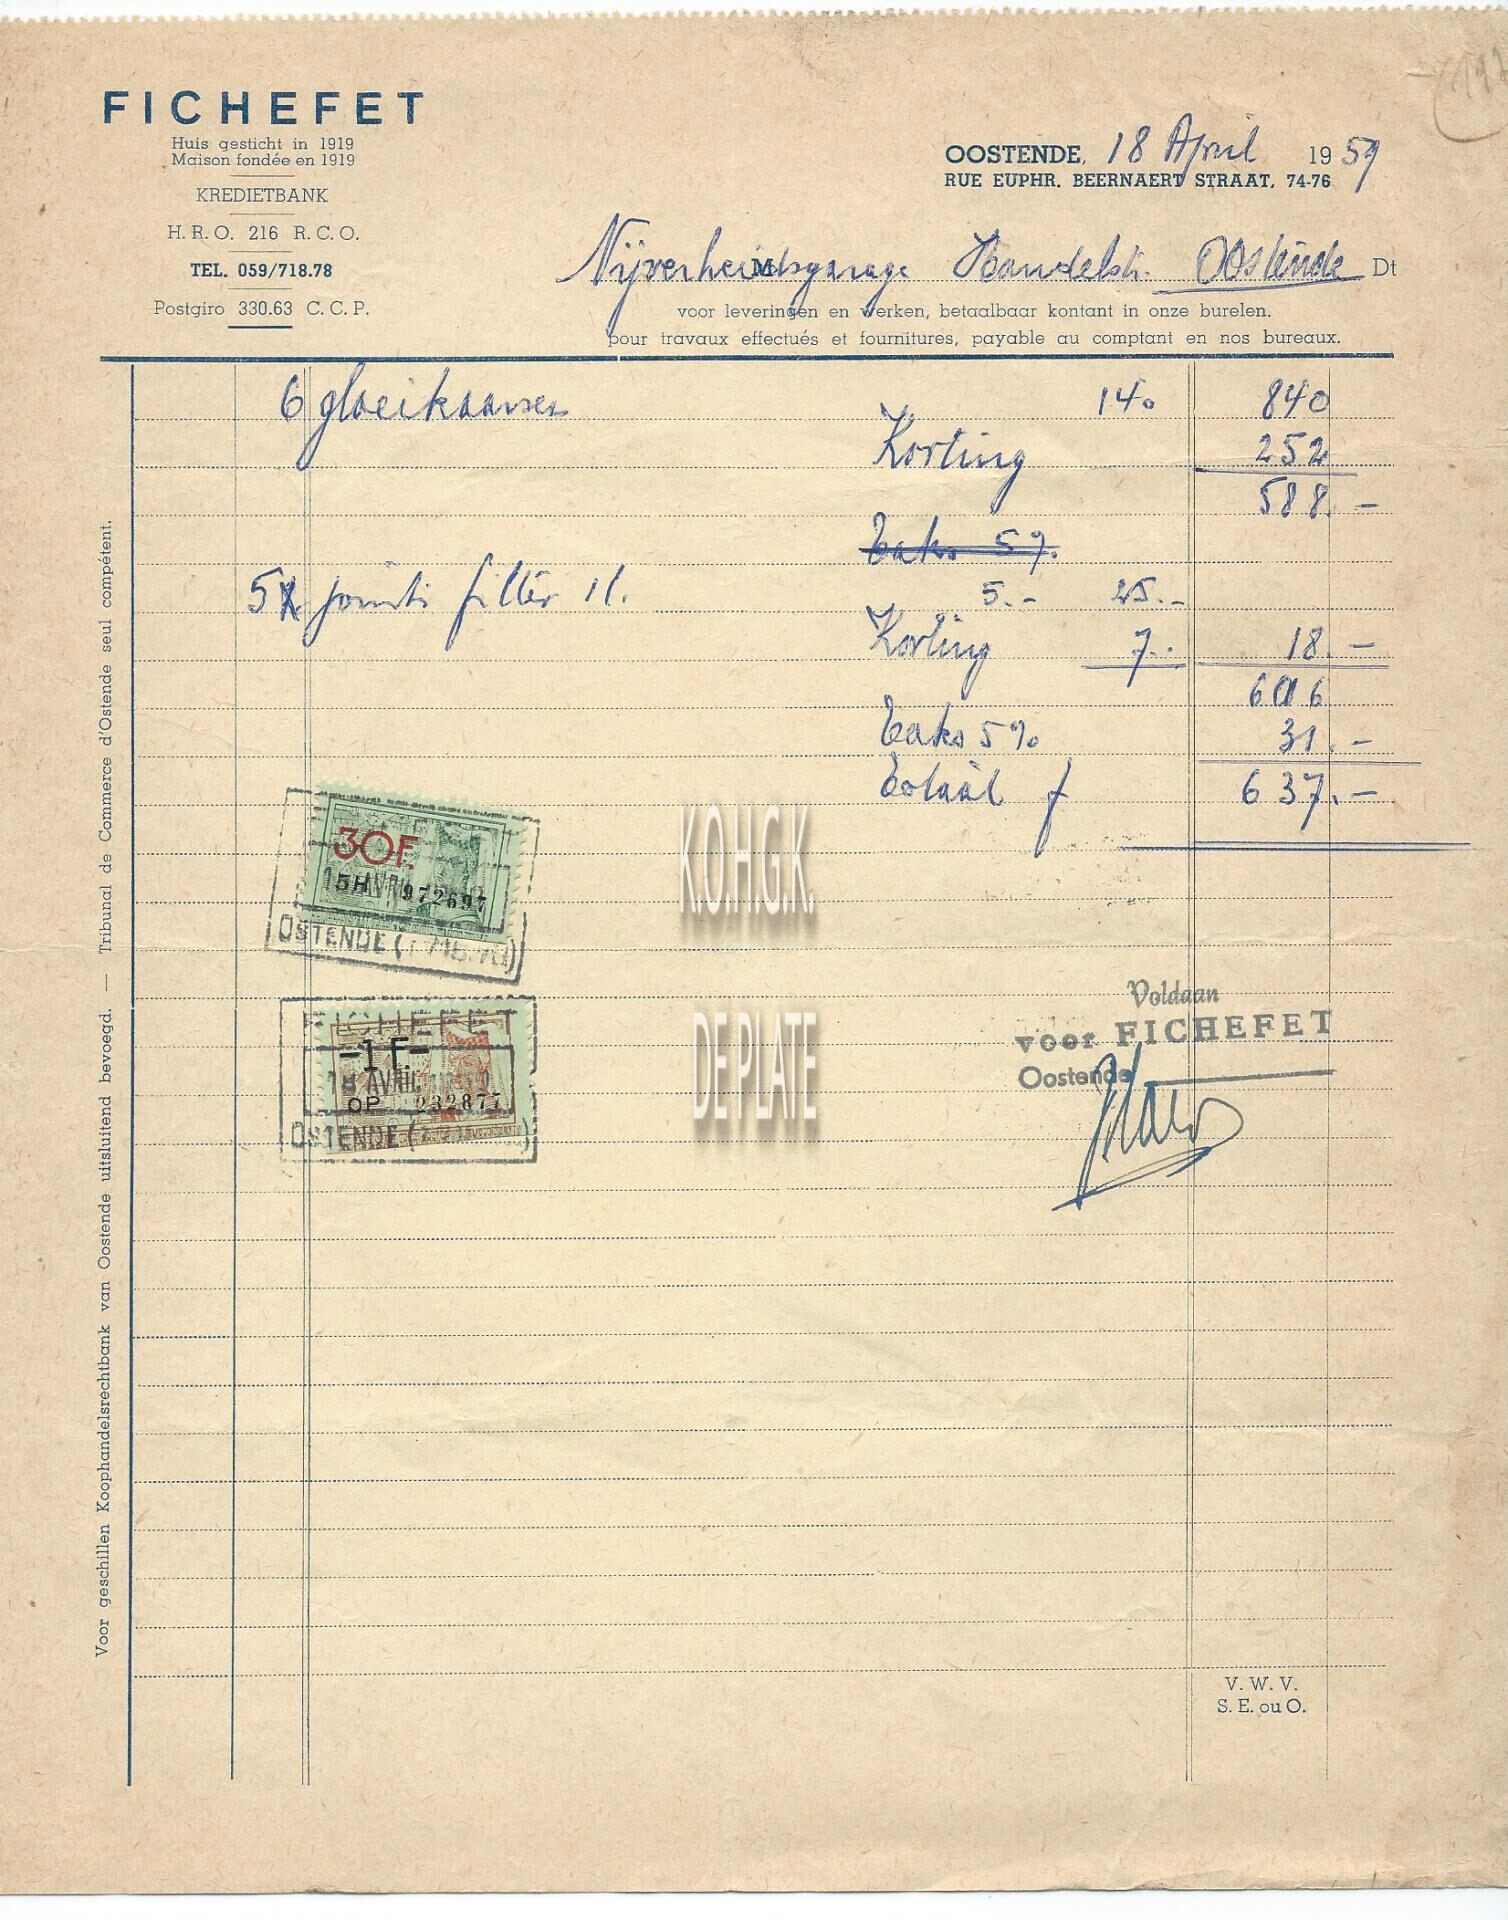 FICHEFET
Huis gesticht in 1919
Maison fondée en 1919
KREDIETBANK
H. R. O. 216 R. C. O.
TEL. 059/718.78
Postgiro 330.63 C. C. P.
OOSTENDE, 18 April 1959
RUE EUPHR. BEERNAERT STRAAT, 74-76
M Nijverheidsgarage Handelstr. Oostende Dt
voor leveringen en werken, betaalbaar kontant in onze burelen.
pour travaux effectués et fournitures, payable au comptant en nos bureaux.
6 gloeikaarsen 140 840
Korting 252
588.-
Taks 5%
5 joints filter 5.- 25.-
Korting 7.- 18.-
606
Taks 5% 31.-
Totaal f 637.-
30F.
5H 972697
OSTENDE
FICHEFET
-1F-
18 AVRIL
OP 232877
OSTENDE
K.O.H.G.K.
DE PLATE
Voldaan
voor FICHEFET
Oostende
V. W. V.
S. E. ou O.
Voor geschillen Koophandelsrechtbank van Oostende uitsluitend bevoegd. — Tribunal de Commerce d'Ostende seul compétent.